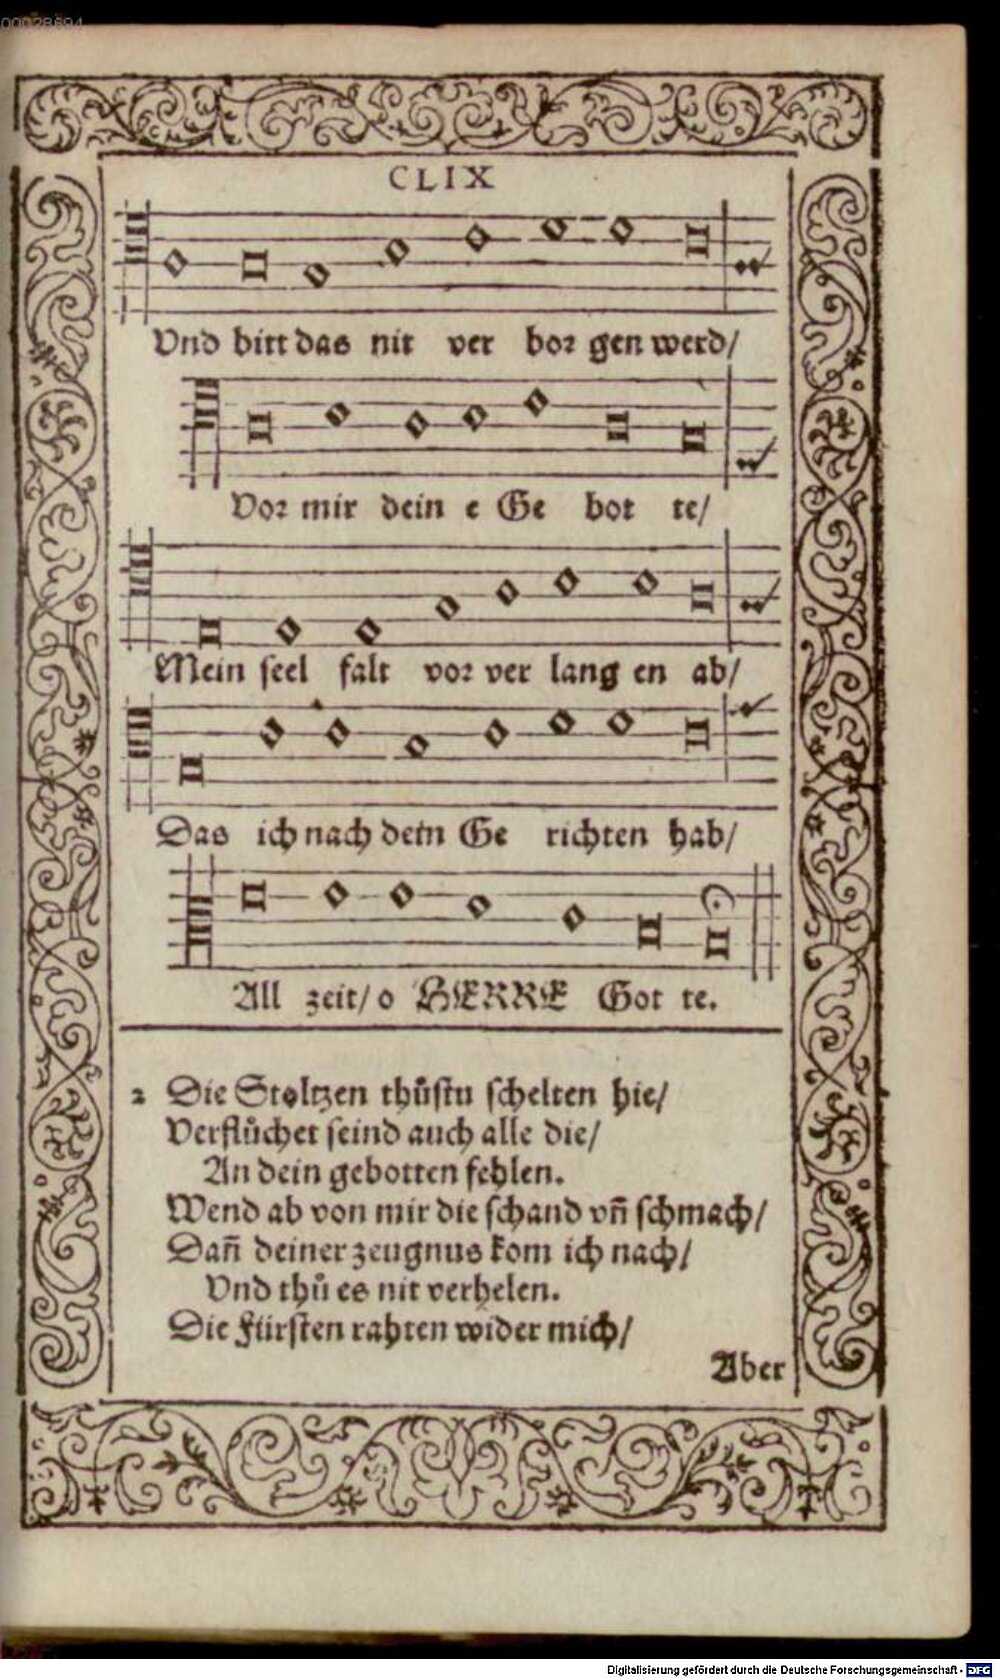 00028694
CLIX
Vnd bitt das nit ver boꝛ gen werd/
Voꝛ mir dein e Ge bot te/
Mein seel falt voꝛ ver lang en ab/
Das ich nach dein Ge richten hab/
All zeit/ o HERRE Got te.
2 Die Stoltzen thůstu schelten hie/
Verflůchet seind auch alle die/
An dein gebotten fehlen.
Wend ab von mir die schand vñ schmach/
Dañ deiner zeugnus kom ich nach/
Vnd thů es nit verhelen.
Die Fürsten rahten wider mich/
Aber
Digitalisierung gefördert durch die Deutsche Forschungsgemeinschaft - DFG